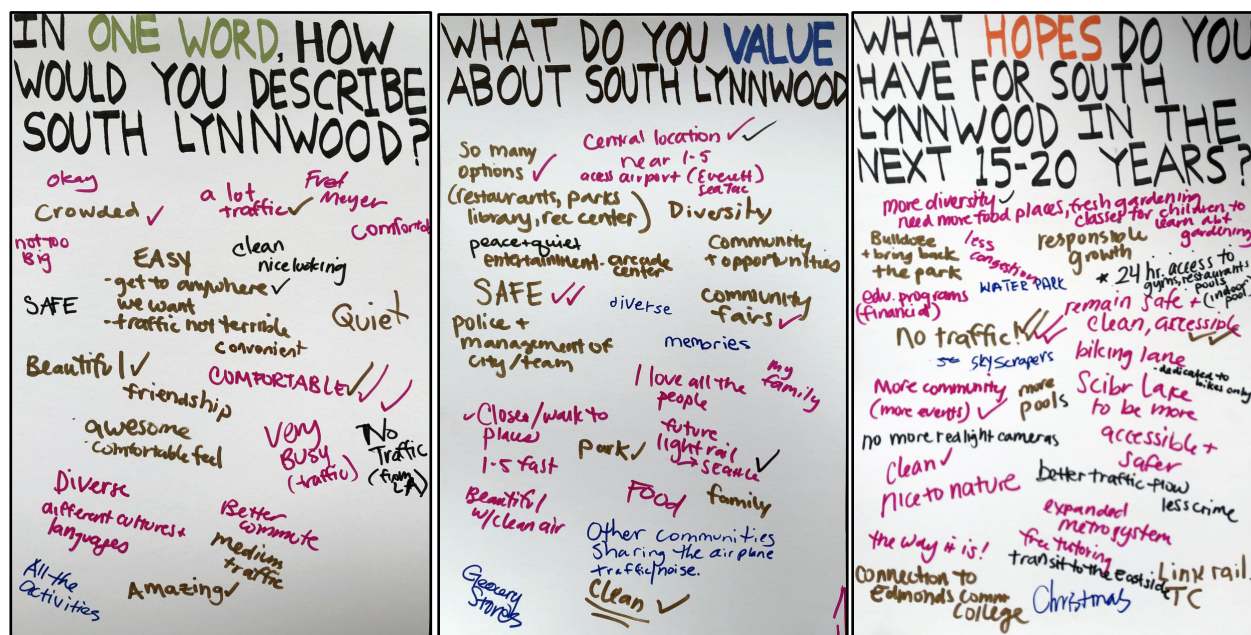 IN ONE WORD, HOW
WOULD YOU DESCRIBE
SOUTH LYNNWOOD?
okay
Crowded ✓
a lot
traffic ✓
Fred
Meyer
comfortable
not too
Big
clean
nice looking
EASY
- get to anywhere ✓
we want
- traffic not terrible
convenient
SAFE
Quiet
Beautiful ✓
friendship
COMFORTABLE ✓✓✓
awesome
comfortable feel
Very
BUSY
(traffic)
No
Traffic
(from
LA)
Diverse
different cultures +
languages
Better
commute
medium
traffic
All the
activities
Amazing ✓
WHAT DO YOU VALUE
ABOUT SOUTH LYNNWOOD
So many
options ✓
(restaurants, parks
library, rec center)
Central location ✓✓
near I-5
acess airport (Everett)
seaTac
Diversity
peace + quiet
entertainment - arcade
center
Community
+ opportunities
SAFE ✓✓
diverse
community
fairs ✓
police +
management of
city/team
memories
I love all the
people
my
family
✓ Close/walk to
places
I-5 fast
park ✓
future
light rail
→ seattle ✓
Beautiful
w/clean air
Food
family
Other communities
sharing the airplane
traffic/noise.
Grocery
Stores
Clean ✓
WHAT HOPES DO YOU
HAVE FOR SOUTH
LYNNWOOD IN THE
NEXT 15-20 YEARS?
more diversity ✓
need more food places, fresh gardening
classes for children to
learn abt
gardening
Bulldoze
+ bring back
the park
less
congestion
responsible
growth
WATER PARK
* 24 hr. access to
gyms, restaurants
pools
(indoor
pool)
edu. programs
(financial)
remain safe +
clean, accessible ✓✓
No traffic! ✓✓✓
skyscrapers
biking lane
- dedicated to
bikes only
More community
(more events) ✓
more
pools
Scibr Lake
to be more
accessible +
safer
no more redlight cameras
clean ✓
nice to nature
better traffic flow
less crime
expanded
metro system
the way it is!
free tutoring
transit to the eastside
Link rail
TC
connection to
edmonds comm
college
Christmas